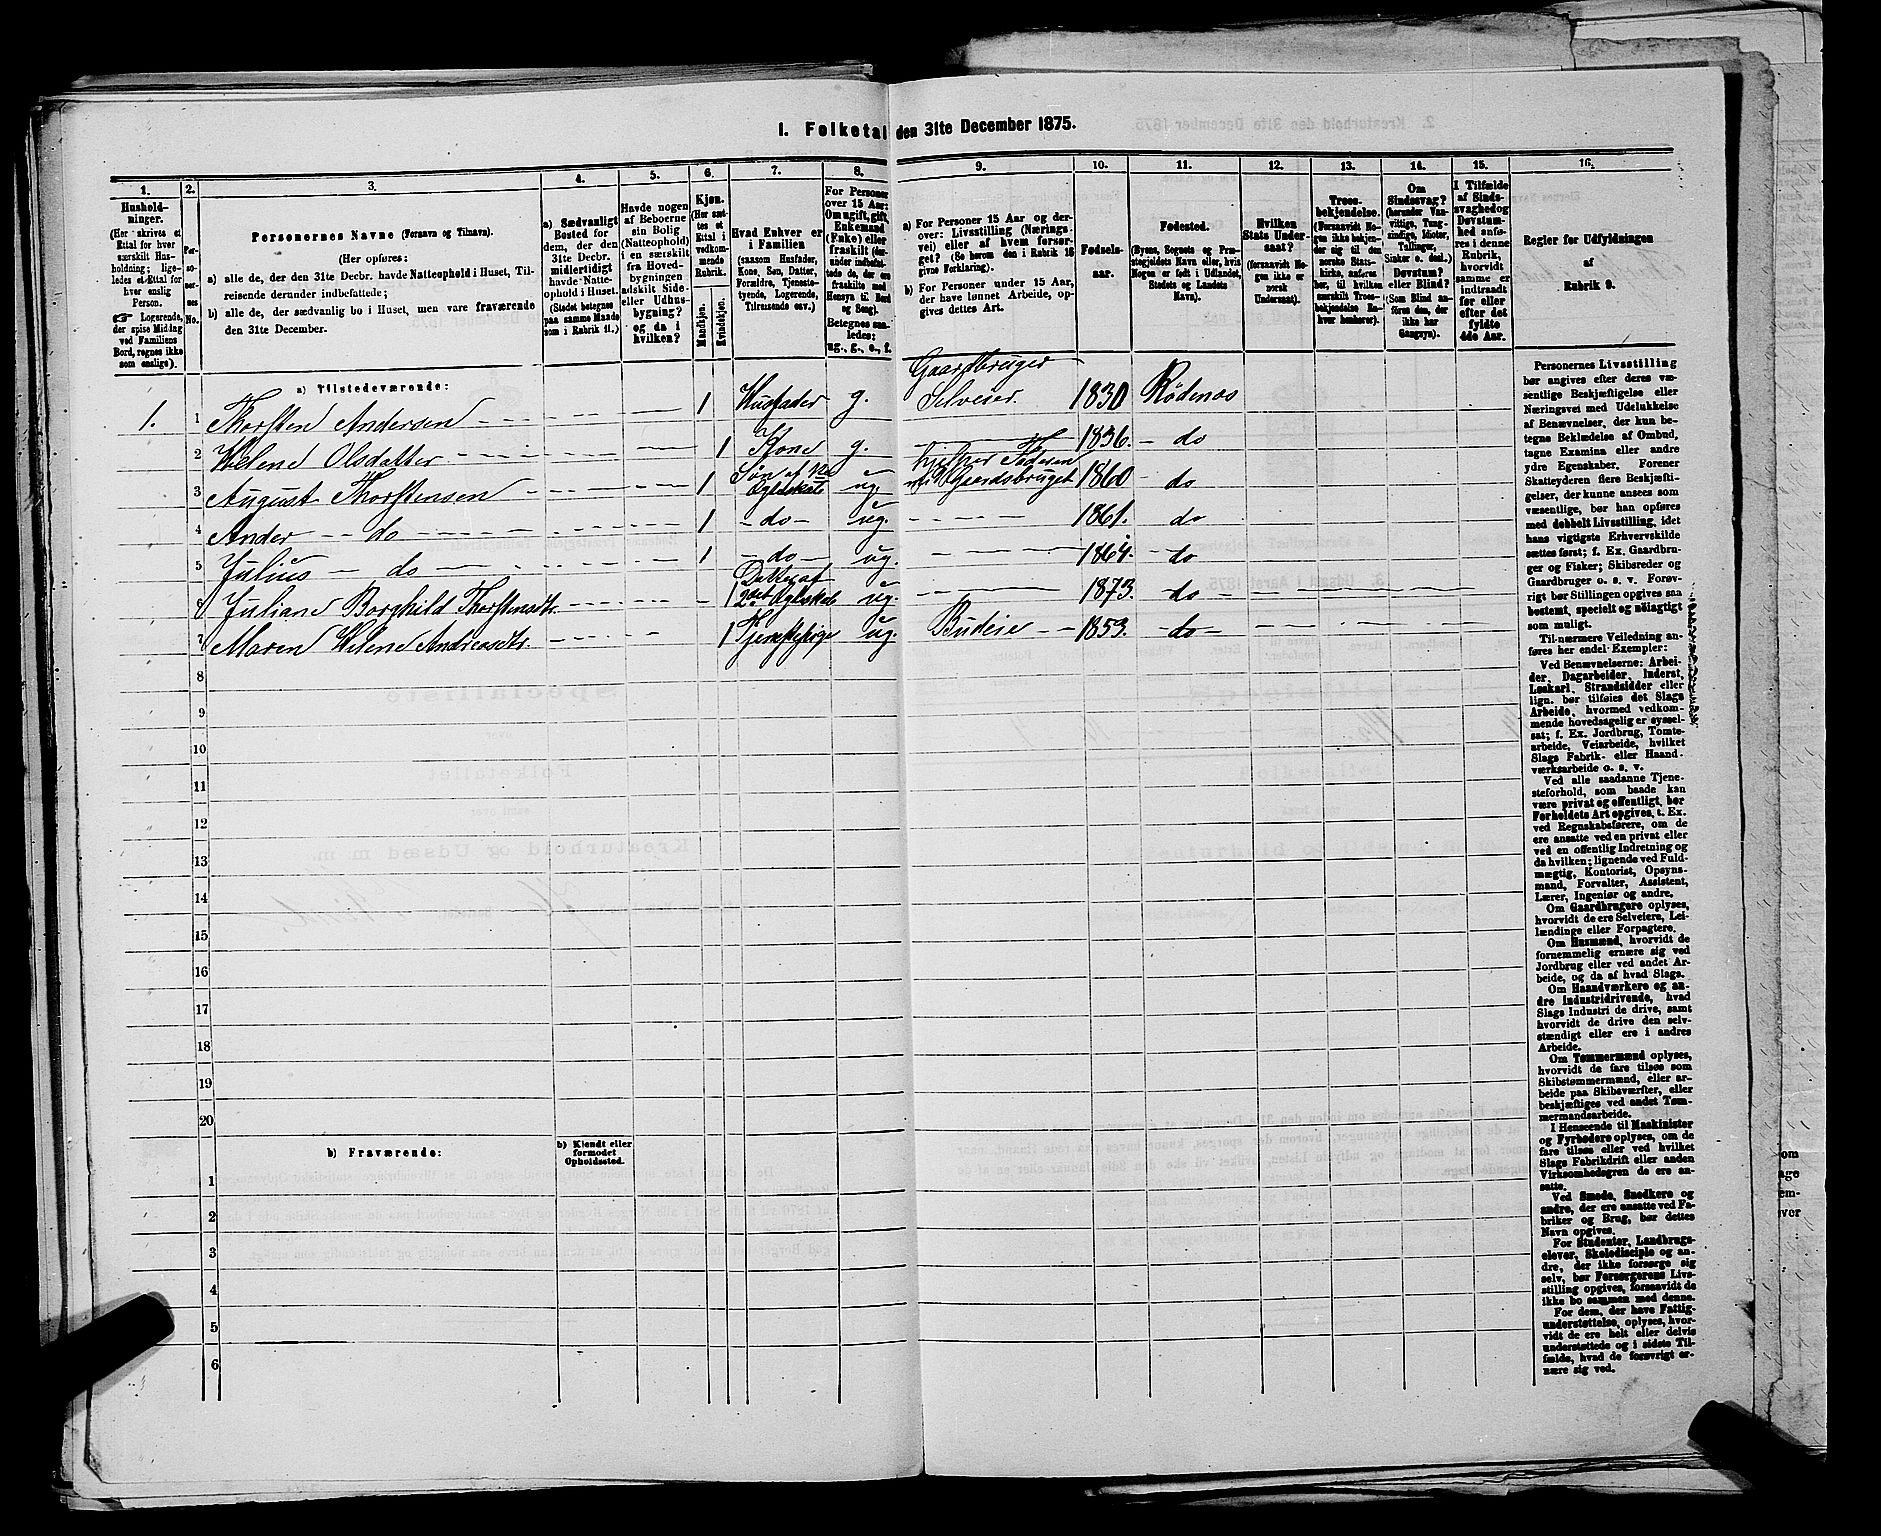 1. Folketal den 31te December 1875.
1. 2. 3. 4. 5. 6. 7. 8. 9. 10. 11. 12. 13. 14. 15. 16.
Hushold-
ninger.
(Her skrives et
Ettal for hver
særskilt Hus-
holdning; lige-
ledes et Ettal for
hver enslig
Person.
Logerende,
der spise Middag
ved Familiens
Bord, regnes ikke
som enslige).
Per-
so-
ner-
nes
No.
Personernes Navne (Fornavn og Tilnavn).
(Her opføres:
a) alle de, der den 31te Decbr. havde Natteophold i Huset, Til-
reisende derunder indbefattede;
b) alle de, der sædvanlig bo i Huset, men vare fraværende
den 31te December.
a) Sædvanligt
Bosted for
dem, der den
31te Decbr.
midlertidigt
havde Natte-
ophold i Huset.
(Stedet betegnes
paa samme Maade
som i Rubrik 11.)
Havde nogen
af Beboerne
sin Bolig
(Natteophold)
i en særskilt
fra Hoved-
bygningen
adskilt Side-
eller Udhus-
bygning?
og da i
hvilken?
Kjøn.
(Her sæt-
tes et
Ettal i
vedkom-
mende
Rubrik.
Mandkjøn.
Kvindekjøn.
Hvad Enhver er
i Familien
(saasom Husfader,
Kone, Søn, Datter,
Forældre, Tjeneste-
tyende, Logerende,
Tilreisende osv.)
For Personer
over 15 Aar:
Om ugift, gift,
Enkemand
(Enke) eller
fraskilt (der-
under indbefat-
tede de, der ere
fraskilte med
Hensyn til Bord
og Seng).
Betegnes saa-
ledes:
ug., g., e., f.
a) For Personer 15 Aar og der-
over: Livsstilling (Nærings-
vei) eller af hvem forsør-
get? (Se herom den i Rubrik 16
givne Forklaring).
b) For Personer under 15 Aar,
der have lønnet Arbeide, op-
gives dettes Art.
Fødsels-
aar.
Fødested.
(Byens, Sognets og Præ-
stegjeldets Navn eller, hvis
Nogen er født i Udlandet,
Stedets og Landets
Navn).
Hvilken
Stats Under-
saat?
(forsaavidt No-
gen ikke er
norsk
Undersaat).
Troes-
bekjendelse.
(Forsaavidt No-
gen ikke bekjen-
der sig til den
norske Stats-
kirke, anføres
her, til hvilken
særskilt Troes-
bekjendelse En-
hver henhører).
Om
Sindssvag?
(herunder Van-
vittige, Tung-
sindige, Idioter,
Tullinger,
Sinker o. desl.)
Døvstum?
eller Blind?
(Som Blind an-
føres den, der
ikke har
Gangsyn).
I Tilfælde
af Sinds-
svaghed og
Døvstum-
hed anfø-
res i denne
Rubrik,
hvorvidt
samme er
indtraadt
før eller
efter det
fyldte
4de Aar.
Regler for Udfyldningen
af
Rubrik 9.
a) Tilstedeværende:
1. 1 Thorsten Andersen 1 Husfader g. Gaardbruger Selveier. 1830 Rødenæs
2 Helene Olsdatter 1 Kone g. 1836. do
3 August Thorstensen 1 ug hjelper Faderen Gaardsbruget 1860 do
4 Ander do 1 do ug. 1861. do
5 Julius do 1 do ug. 1864. do
6 Juliane Borghild Thorstensdtr. 1 Datter af ug. 1873. do
7 Maren Helene Andreasdtr. 1 Tjenestepige ug. Budeie 1853. do
8
9
10
11
12
13
14
15
16
17
18
19
20
b) Fraværende:
b) Kjendt eller
formodet
Opholdssted.
1
2
3
4
5
6
Personernes Livsstilling
bør angives efter deres væ-
sentlige Beskjæftigelse eller
Næringsvei med Udelukkelse
af Benævnelser, der kun be-
tegne Beklædelse af Ombud,
tagne Examina eller andre
ydre Egenskaber. Forener
Skatteyderen flere Beskjæfti-
gelser, der kunne ansees som
væsentlige, bør han opføres
med dobbelt Livsstilling, idet
hans vigtigste Erhvervskilde
sættes først; f. Ex. Gaardbru-
ger og Fisker; Skibsreder og
Gaardbruger o. s. v. Forøv-
rigt bør Stillingen opgives saa
bestemt, specielt og nøiagtigt
som muligt.
Til nærmere Veiledning an-
føres her endel Exempler:
Ved Benævnelserne: Arbei-
der, Dagarbeider, Inderst,
Løskarl, Strandsidder eller
lign. bør tilføies det Slags
Arbeide, hvormed vedkom-
mende hovedsagelig er syssel-
sat; f. Ex. Jordbrug, Tomte-
arbeide, Veiarbeide, hvilket
Slags Fabrik- eller Haand-
værksarbeide o. s. v.
Ved alle saadanne Tjene-
steforhold, som baade kan
være privat og offentligt, bør
Forholdets Art opgives, t. Ex.
ved Regnskabsførere, om de
ere ansatte ved en privat eller
ved en offentlig Indretning og
da hvilken; lignende ved Fuld-
mægtig, Kontorist, Opsyns-
mand, Forvalter, Assistent,
Lærer, Ingeniør og andre.
Om Gaardbrugere oplyses,
hvorvidt de ere Selveiere, Lei-
lændinge eller Forpagtere.
Om Husmænd, hvorvidt de
fornemmelig ernære sig ved
Jordbrug eller ved andet Ar-
beide, og da af hvad Slags.
Om Haandværkere og an-
dre Industridrivende, hvad
Slags Industri de drive, samt
hvorvidt de drive den selv-
stændigt eller ere i andres
Arbeide.
Om Tømmermænd oplyses,
hvorvidt de fare tilsøs som
Skibstømmermænd, eller ar-
beide paa Skibsværfter, eller
beskjæftiges ved andet Tøm-
mermandsarbeide.
I Henseende til Maskinister
og Fyrbødere oplyses, om de
fare tilsøs eller ved hvilket
Slags Fabrikdrift eller anden
Virksomhedsgren de ere an-
satte.
Ved Smede, Snedkere og
andre, der ere ansatte ved Fa-
briker og Brug, bør dettes
Navn opgives.
For Studenter, Landbrugs-
elever, Skoledisciple og an-
dre, der ikke forsørge sig
selv, bør Forsørgerens Livs-
stilling opgives, forsaavidt de
ikke bo sammen med denne.
For dem, der have Fattig-
understøttelse, oplyses, hvor-
vidt de ere helt eller delvis
understøttede og i sidste Til-
fælde, hvad de forøvrigt er-
nære sig ved.